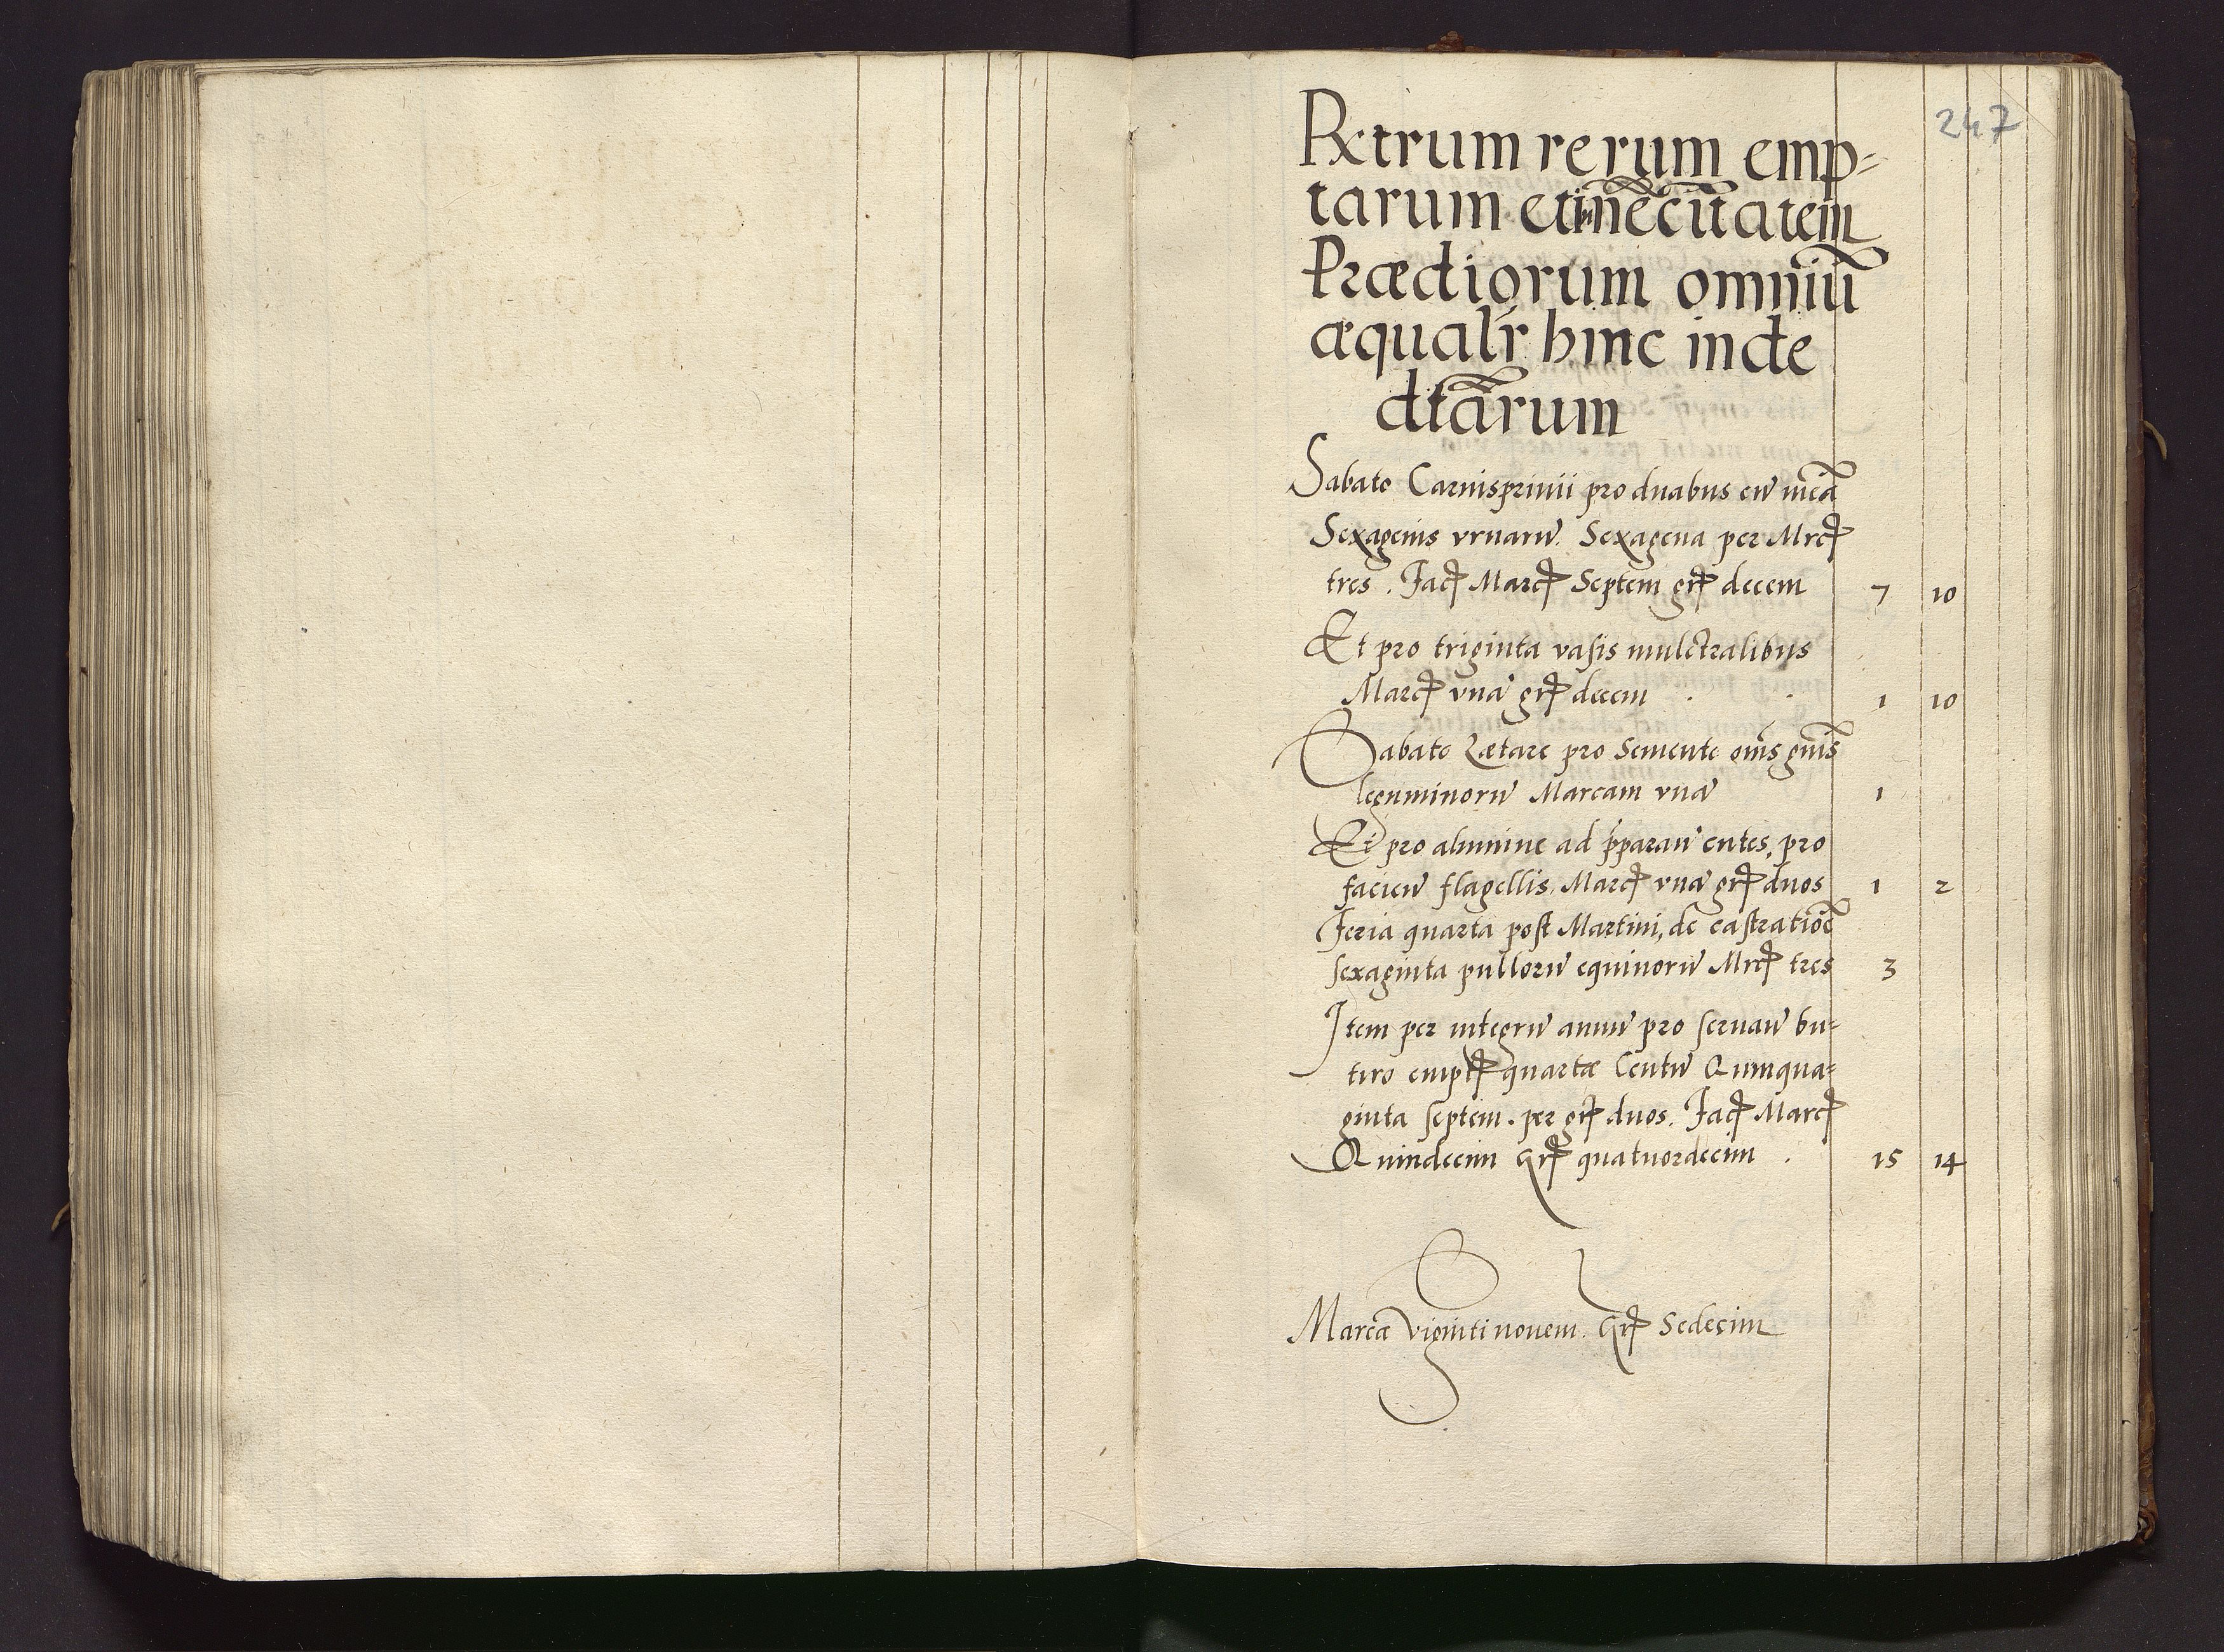 247
Rxtrum rerum emp=
tarum et in nēcītatem
Prædiorum omniū
æqualr hinc inde
dtārum
Sabato Carnisprivii pro duabus cū meā
Sexagenis vrnarū. Sexagena per Mrc
tres. Fac Marc Septem gr decem 7 10
Et pro triginta vasis mulctralibus
Marc vnā gr decem . . 1 10
Sabato Lætare pro Semente om̄s gn̄is
leguminorū Marcam vnā 1
Et pro alumine ad p̄paran̄ cutes, pro
facien̄ flagellis, Marc vnā gr duos 1 2
Feria quarta post Martini, de castratiōe
sexaginta pullorū equinorū Mrc tres 3
Item per integrū annū pro seruan̄ bu=
tiro empt quartæ Centū Quinqua=
ginta septem. per gr duos. Fac Marc
Quindecim Gr quatuordecim . 15 14
Marcæ viginti novem. Gr Sedecim